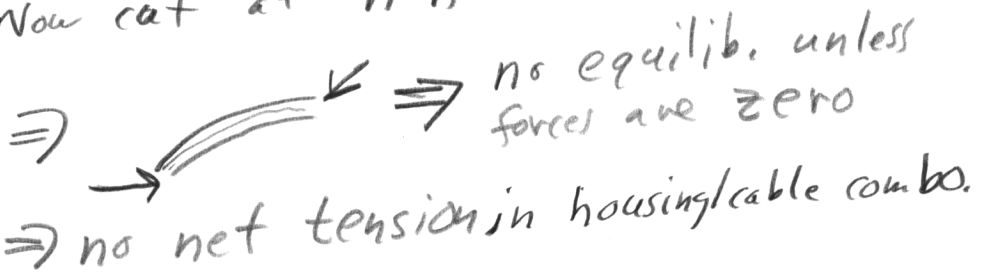 Now cut at
⇒ ⇒ no equilib. unless
forces are zero
⇒ no net tension in housing/cable combo.